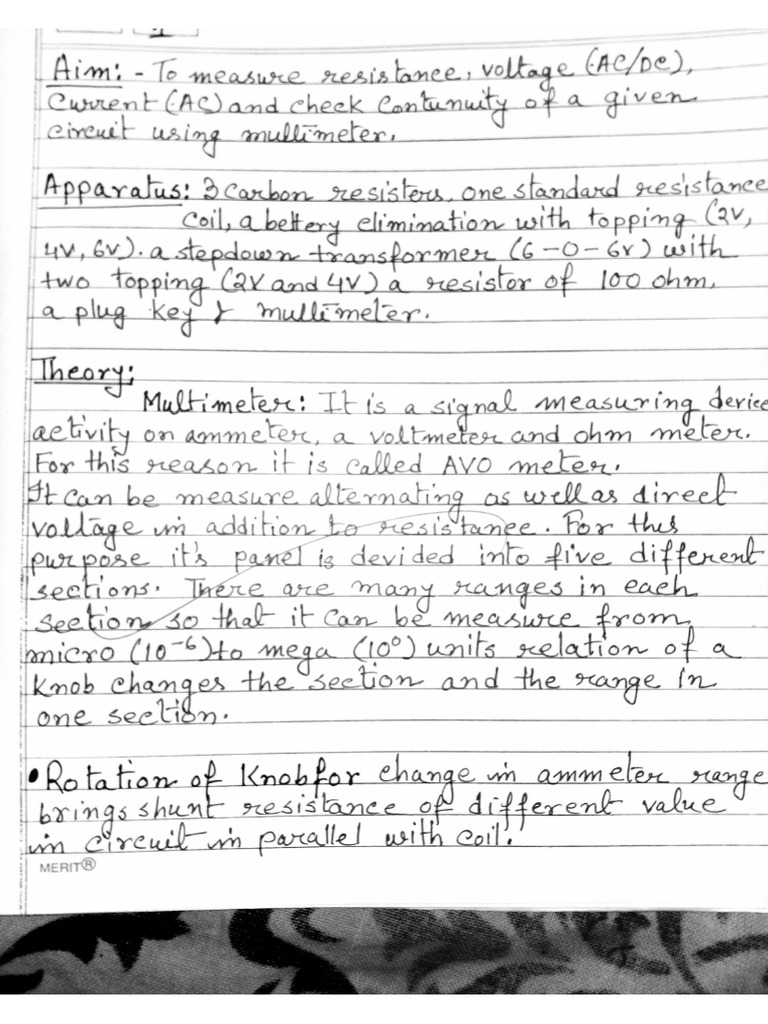 Aim: - To measure resistance, voltage (AC/DC),
Current (AC) and check Contunuity of a given
circuit using multimeter.
Apparatus: 3 Carbon resisters, one standard resistance
coil, a bettery elimination with topping (2V,
4V, 6V). a stepdown transformer (6-0-6V) with
two topping (2V and 4V) a resistor of 100 ohm,
a plug key & multimeter.
Theory:
Multimeter: It is a signal measuring device
activity on ammeter, a voltmeter and ohm meter.
For this reason it is called AVO meter.
It can be measure alternating as well as direct
voltage in addition to resistance. For this
purpose it's panel is devided into five different
sections. There are many ranges in each
section so that it can be measure from
micro (10⁻⁶) to mega (10⁰) units relation of a
Knob changes the section and the range in
one section.
• Rotation of Knob for change in ammeter range
brings shunt resistance of different value
in circuit in parallel with coil.
MERIT®